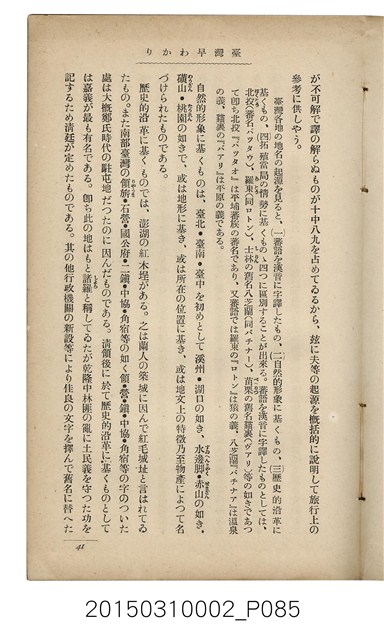 臺灣早わかり
が不可解で譯の解らぬものが十中八九を占めてゐるから、玆に夫等の起源を概括的に說明して旅行上の
參考に供しやう。
臺灣各地の地名の起源を見ると、(一)蕃語を漢音に字譯したもの、(二)自然的形象に基くもの、(三)歷史的沿革に
基くもの、(四)拓殖當局の情勢に基くもの、四つに區別することが出來る。蕃語を漢音に字譯したものとしては、
北投(蕃名パツタウ)、羅東(同ロトン)、士林の舊名八芝蘭(同パチナー)、苗栗の舊名貓裏(ヴアリ)等の如きであつ
て卽ち北投『パツタオ』は平埔蕃族の蕃名であり、又蕃語では羅東の『ロトン』は猿の義、八芝蘭『パチナア』は溫泉
の義、貓裏の『バアリ』は平原の義である。
自然的形象に基くものは、臺北・臺南・臺中を初めとして溪州・湖口の如き、水邊脚・赤山の如き、
礦山・桃園の如きで、或は地形に基き、或は所在の位置に基き、或は地文上の特徵乃至物產によつて名
づけられたものである。
歷史的沿革に基くものでは、澎湖の紅木埕がある。之は蘭人の築城に因んで紅毛城址と言はれてゐ
たもの。また南部臺灣の領旂・右營・國公府・二鎭・中協・角宿等の如く領・營・鎭・中協・角宿等の字のついた
處は大槪鄭氏時代の駐屯地だつたのに因んだものである。淸領後に於て歷史的沿革に基くものとして
は嘉義が最も有名である。卽ち此の地はもと諸羅と稱してゐたが乾隆中林匪の亂に土民義を守つた功を
記するため淸廷が定めたものである。其の他行政機關の新設等により佳良の文字を擇んで舊名に替へた
41
20150310002_P085